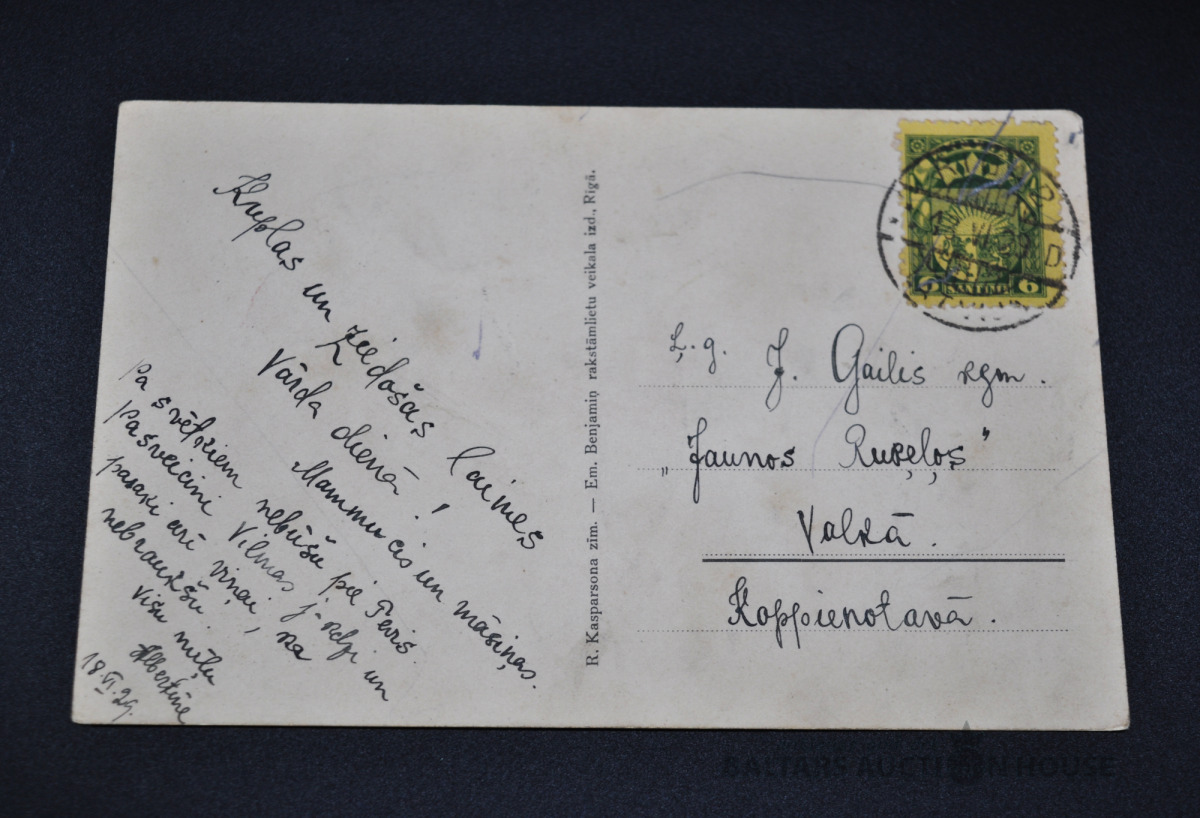 Kuplas un ziedošas laimes
Vārda dienā!
Mammucis un māsiņas.
Pa svētkiem nebūšu pie Tevis.
Pasveicini Vilmas j-kdzi un
pasaki arī viņai, ka
nebraukšu.
Visu mīļu
Albertine
18.VI.29.
R. Kasparsona zīm. — Em. Benjamiņ rakstāmlietu veikala izd., Rīgā.
6 6
Ļ. g. J. Gailis kgm.
„Jaunos Ruķeļos"
Valkā.
Koppienotavā.
BALTARS AUCTION HOUSE